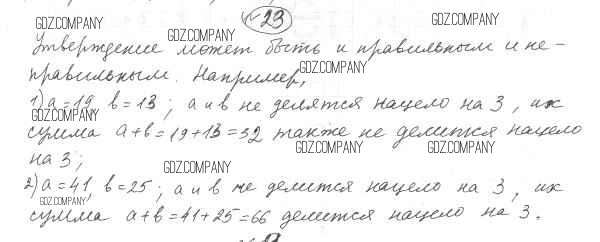 № 23
GDZ.COMPANY GDZ.COMPANY GDZ.COMPANY
Утверждение может быть и правильным и не-
GDZ.COMPANY
правильным. Например,
1) a=19, b=13; a и b не делятся нацело на 3, их
GDZ.COMPANY
сумма a+b=19+13=32 также не делится нацело
GDZ.COMPANY GDZ.COMPANY
на 3;
GDZ.COMPANY
2) a=41, b=25; a и b не делится нацело на 3, их
GDZ.COMPANY GDZ.COMPANY GDZ.COMPANY
сумма a+b=41+25=66 делится нацело на 3.